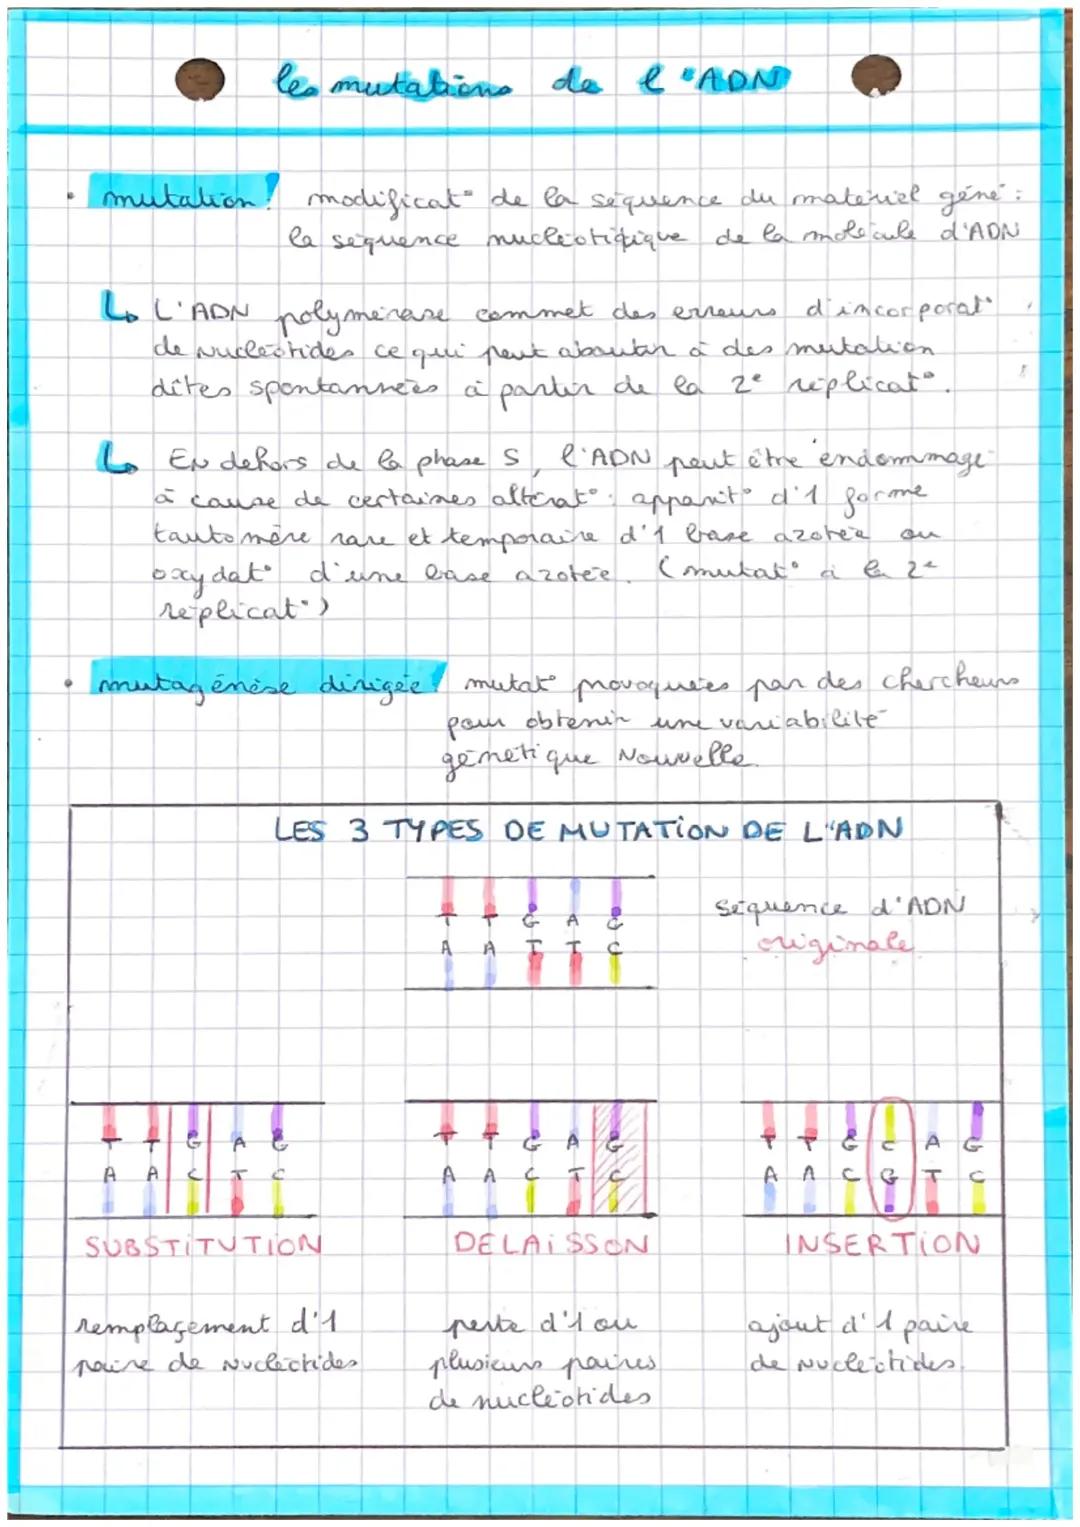 les mutations de l'ADN
• mutation : modificat° de la séquence du matériel géné :
la séquence nucléotidique de la molécule d'ADN
↳ L'ADN polymérase commet des erreurs d'incorporat°
de nucléotides ce qui peut aboutir à des mutation
dites spontannées à partir de la 2e réplicat°.
↳ En dehors de la phase S, l'ADN peut être endommagé
à cause de certaines altérat° : apparit° d'1 forme
tautomère rare et temporaire d'1 base azotée ou
oxydat° d'une base azotée. (mutat° à la 2e
réplicat°)
• mutagénèse dirigée : mutat° provoquées par des chercheurs
pour obtenir une variabilité
génétique Nouvelle.
LES 3 TYPES DE MUTATION DE L'ADN
T T G A G
A A T T C
séquence d'ADN
originale
T T G A G
A A C T C
SUBSTITUTION
remplaçement d'1
paire de Nucléotides
T T G A G
A A C T C
DELAISSON
perte d'1 ou
plusieurs paires
de nucléotides
T T G C A G
A A C G T C
INSERTION
ajout d'1 paire
de Nucléotides.